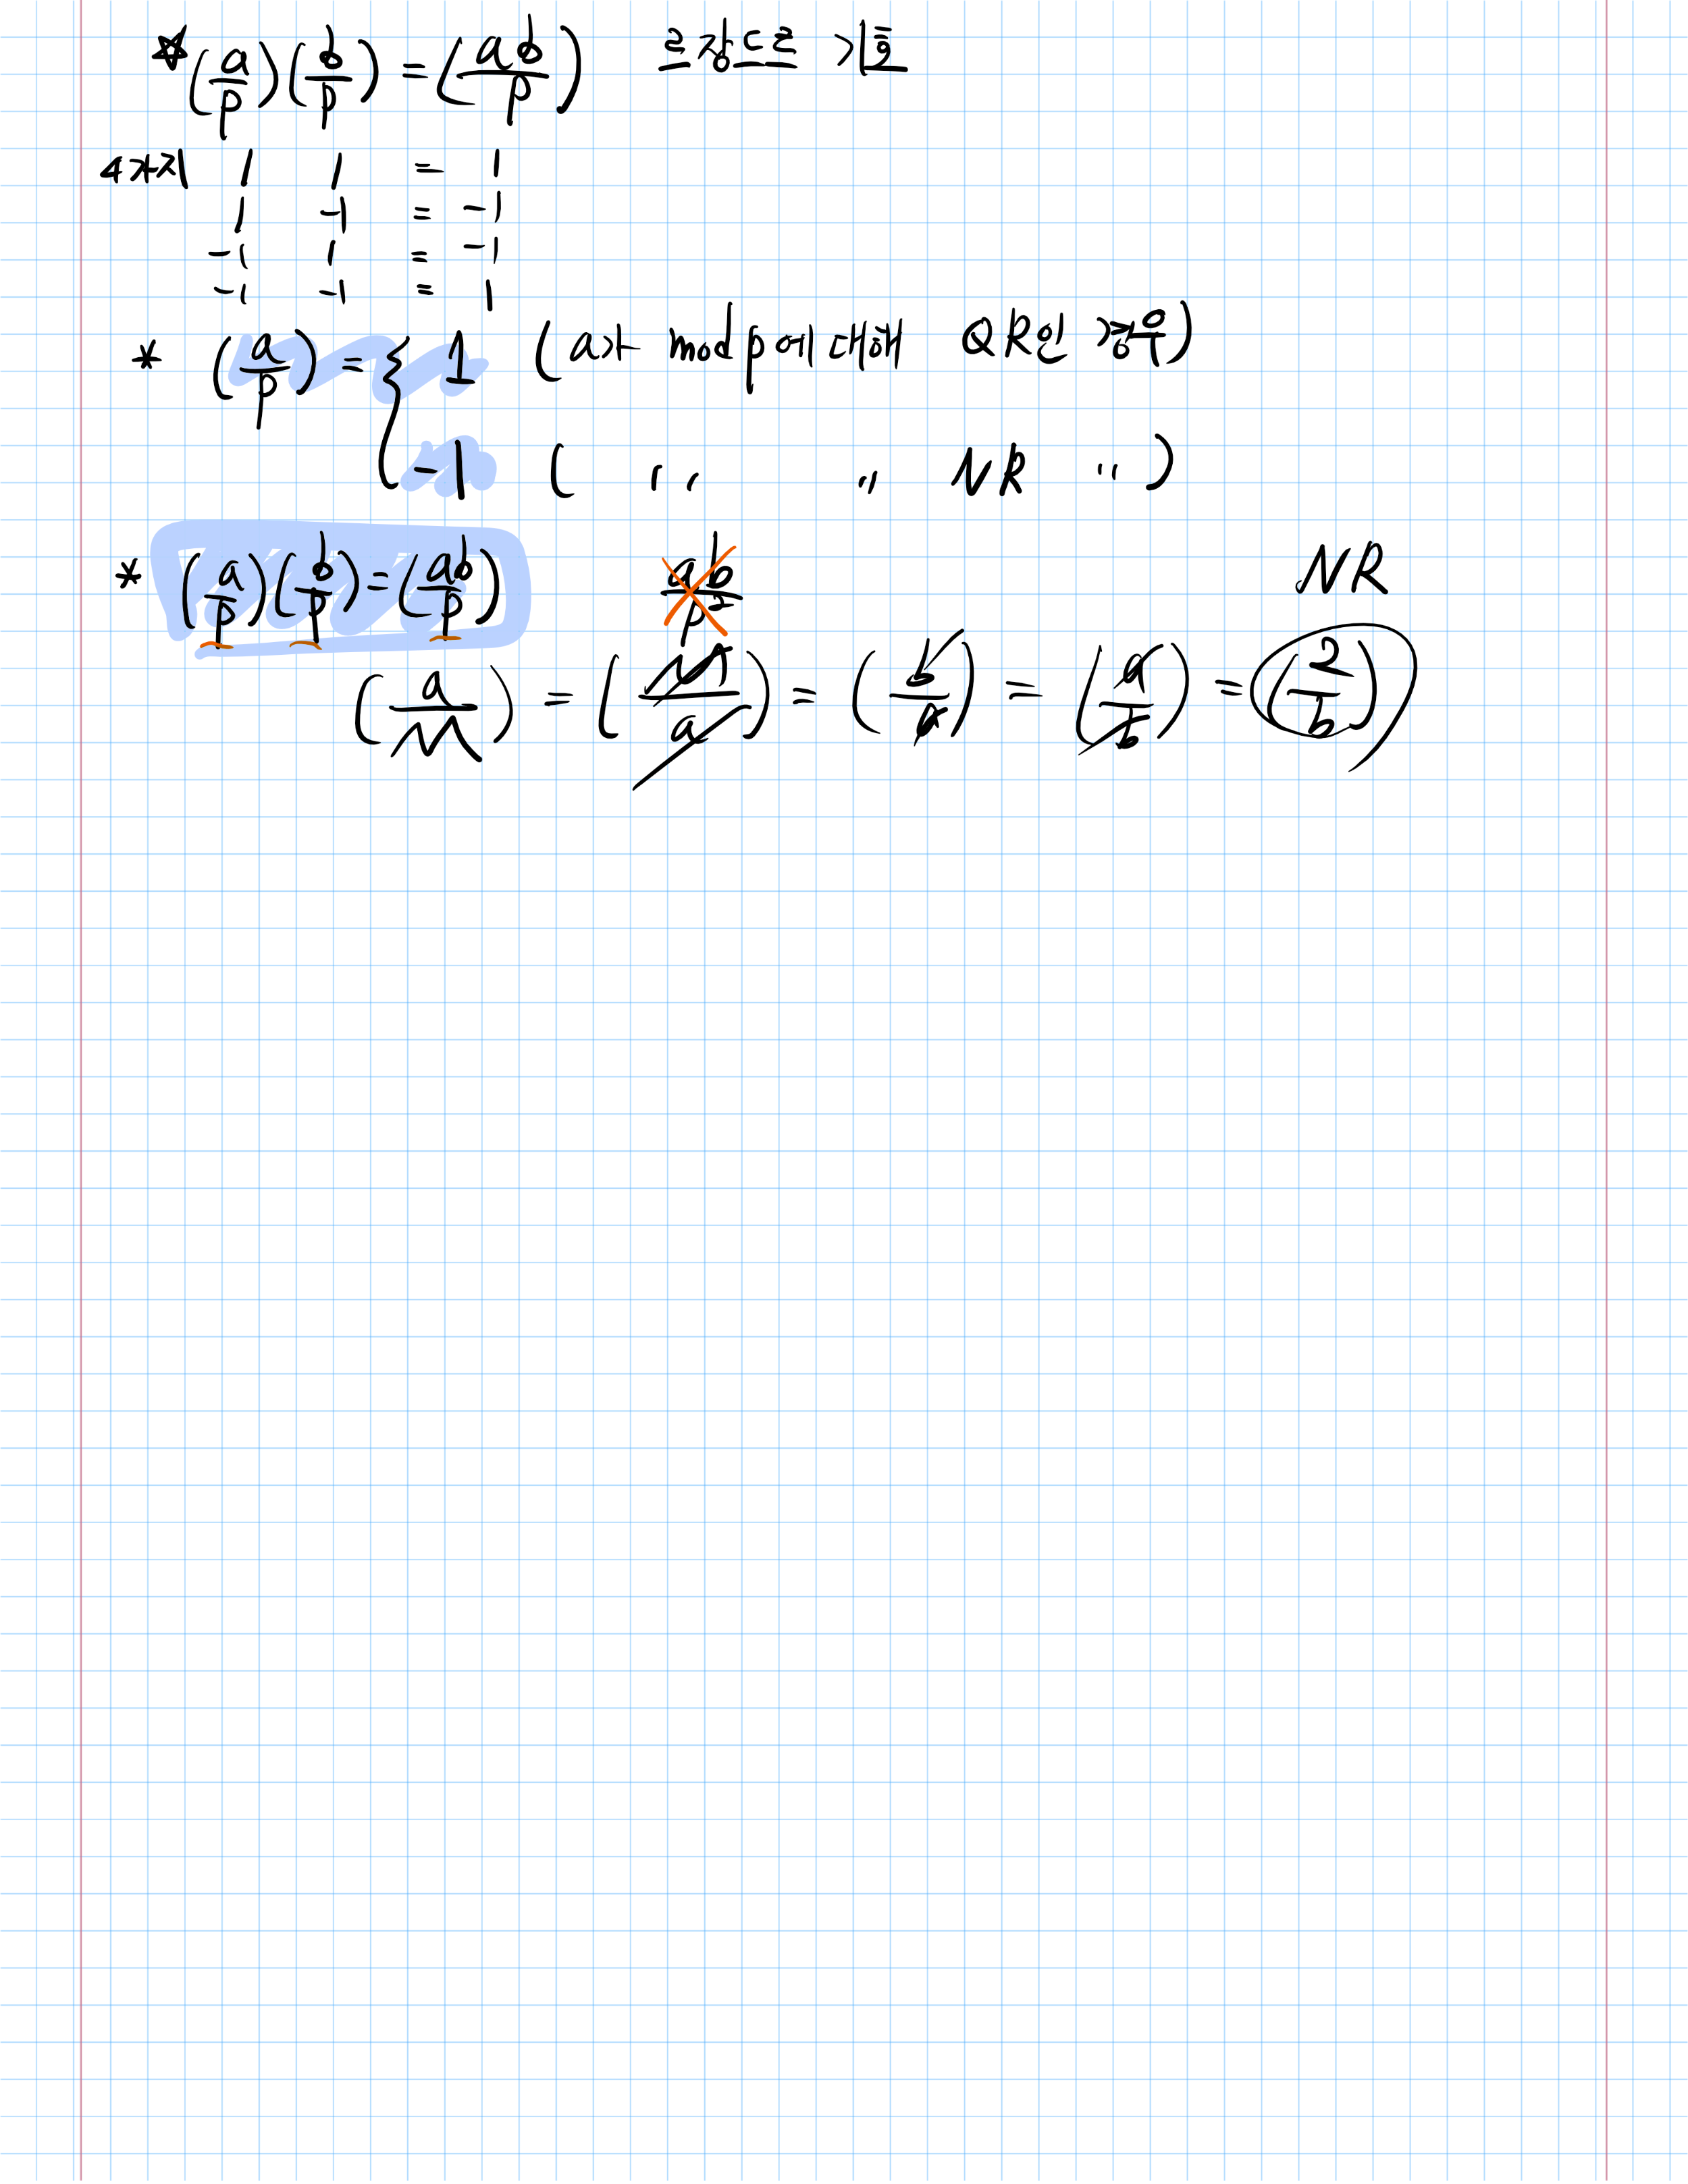 ☆ (a/p)(b/p) = (ab/p) 르장드르 기호
4가지 1 1 = 1
1 -1 = -1
-1 1 = -1
-1 -1 = 1
* (a/p) = { 1 (a가 mod p에 대해 QR인 경우)
-1 ( 〃 〃 NR 〃 )
* (a/p)(b/p) = (ab/p) ab/p² NR
(a/M) = (M/a) = (b/a) = (a/b) = (2/b)